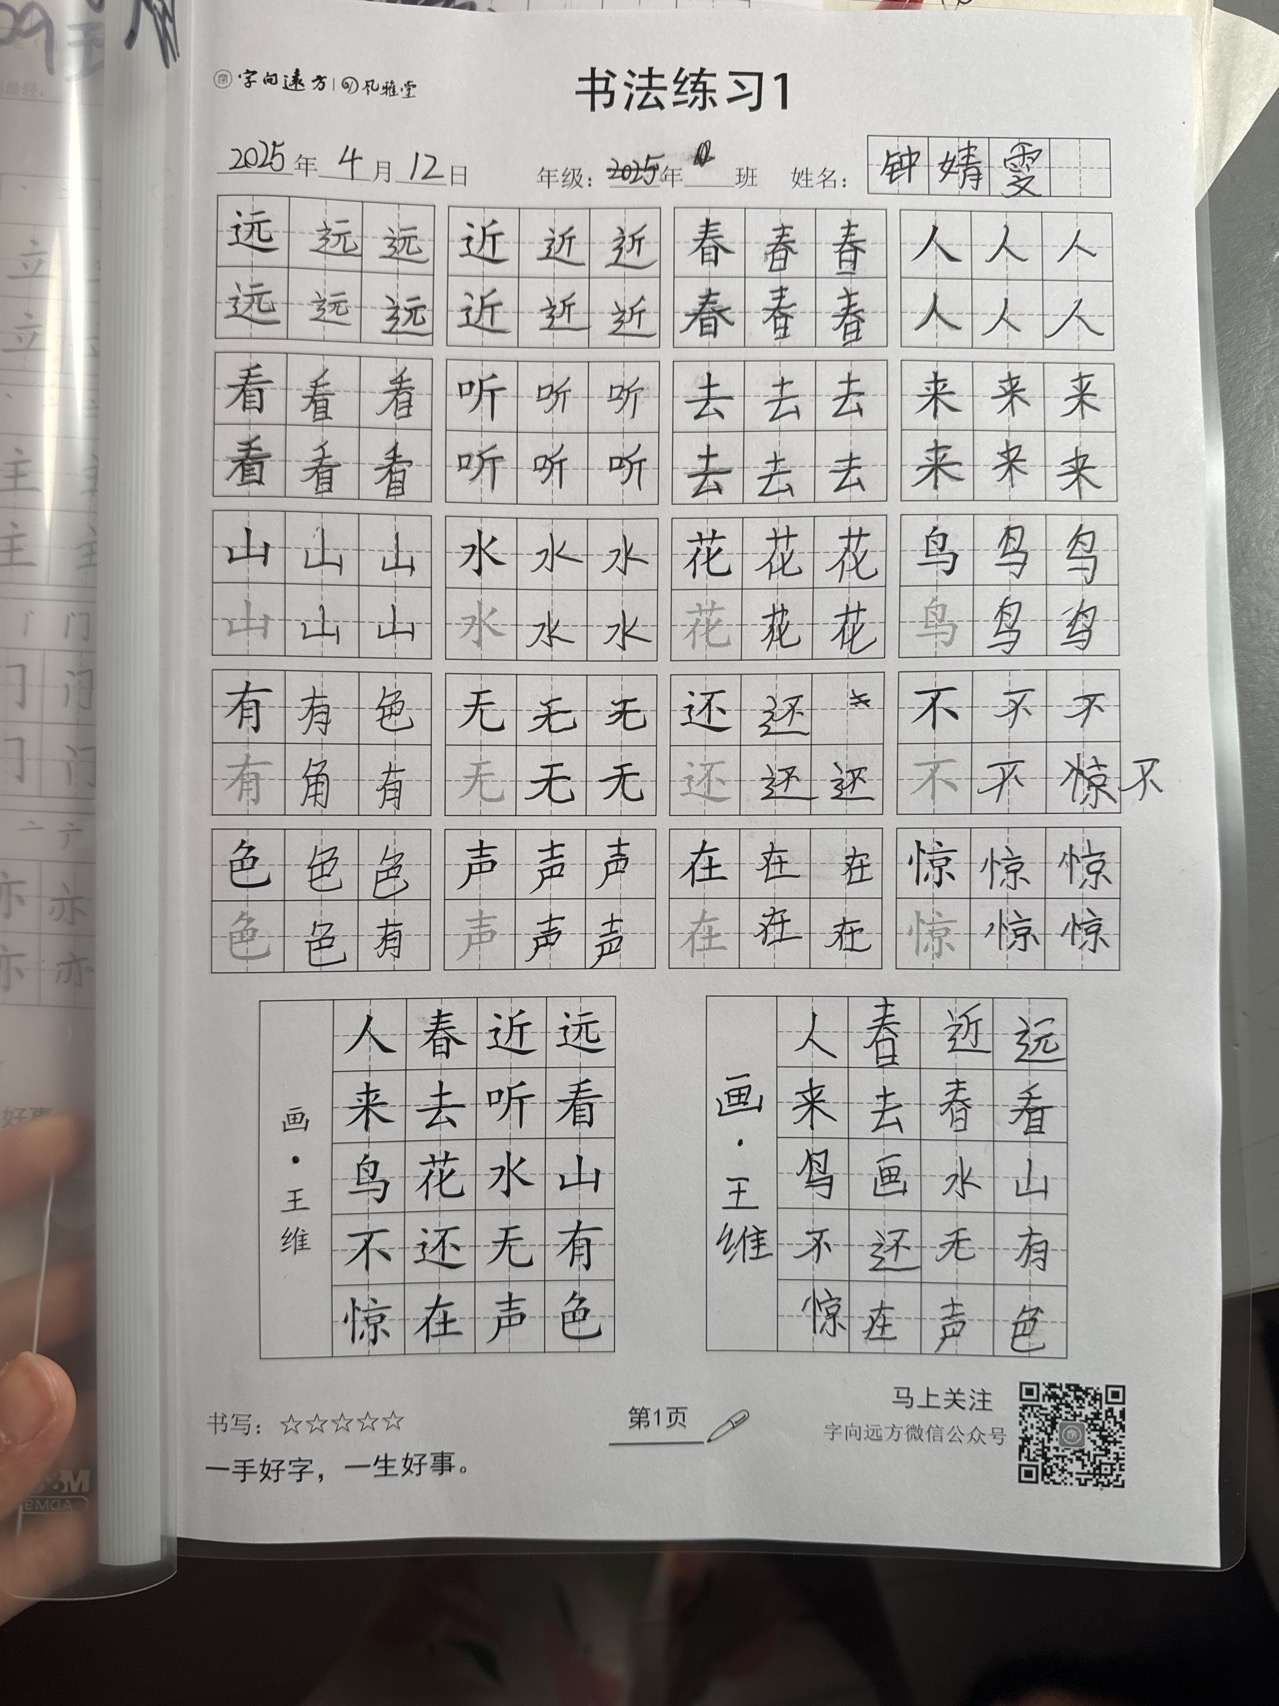 字向远方 | 风雅堂
书法练习1
2025年4月12日 年级：2025年 班 姓名：钟婧雯
远远远 近近近 春春春 人人人
远远远 近近近 春春春 人人人
看看看 听听听 去去去 来来来
看看看 听听听 去去去 来来来
山山山 水水水 花花花 鸟鸟鸟
山山山 水水水 花花花 鸟鸟鸟
有有色 无无无 还还 不不不
有角有 无无无 还还还 不不惊不
色色色 声声声 在在在 惊惊惊
色色有 声声声 在在在 惊惊惊
远看山有色
近听水无声
春去花还在
人来鸟不惊
画·王维
远看山有色
近春水无声
春去画还在
人来鸟不惊
画·王维
书写：☆☆☆☆☆
一手好字，一生好事。
第1页
马上关注
字向远方微信公众号